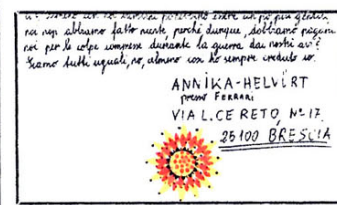 potrebbero essere un po' più gentili,
noi non abbiamo fatto niente perché dunque, dobbiamo pagare
noi per le colpe commesse durante la guerra dai nostri avi?
Siamo tutti uguali, no, almeno così ho sempre creduto io.
ANNIKA-HELVIRT
presso FERRARI
VIA L. CERETO, Nº 17
25100 BRESCIA